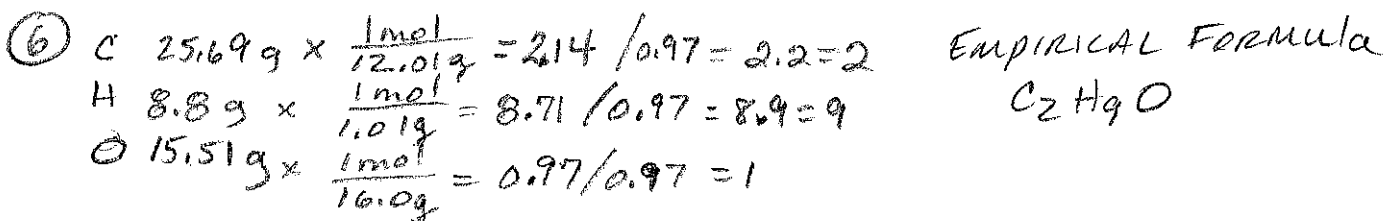 ⑥ C 25.69 g × 1mol/12.01g = 2.14 /0.97 = 2.2 = 2 EMPIRICAL FORMULA
H 8.8 g × 1mol/1.01g = 8.71 /0.97 = 8.9 = 9 C₂H₉O
O 15.51g × 1mol/16.0g = 0.97/0.97 = 1